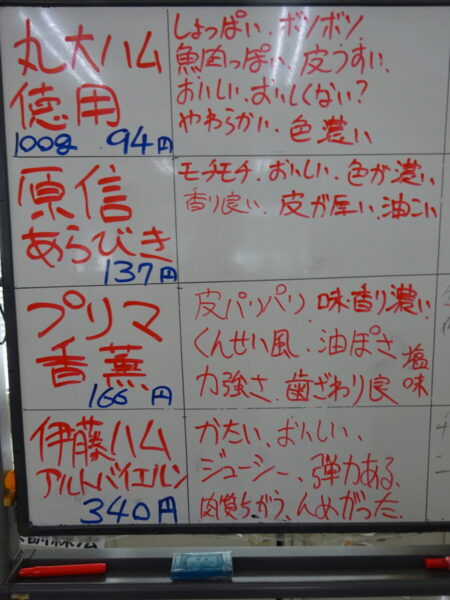 丸大ハム
徳用
100g 94円
しょっぱい、ボソボソ
魚肉っぽい、皮うすい、
おいしい、おいしくない?
やわらかい、色濃い
原信
あらびき
137円
モチモチ、おいしい、色が濃い、
香り良い、皮が厚い、油こい
プリマ
香薫
166円
皮パリパリ、味香り濃い
くんせい風、油ぽさ
力強さ、歯ざわり良
塩味
伊藤ハム
アルトバイエルン
340円
かたい、おいしい、
ジューシー、弾力ある、
肉質ちがう、んめがった。
訓練法